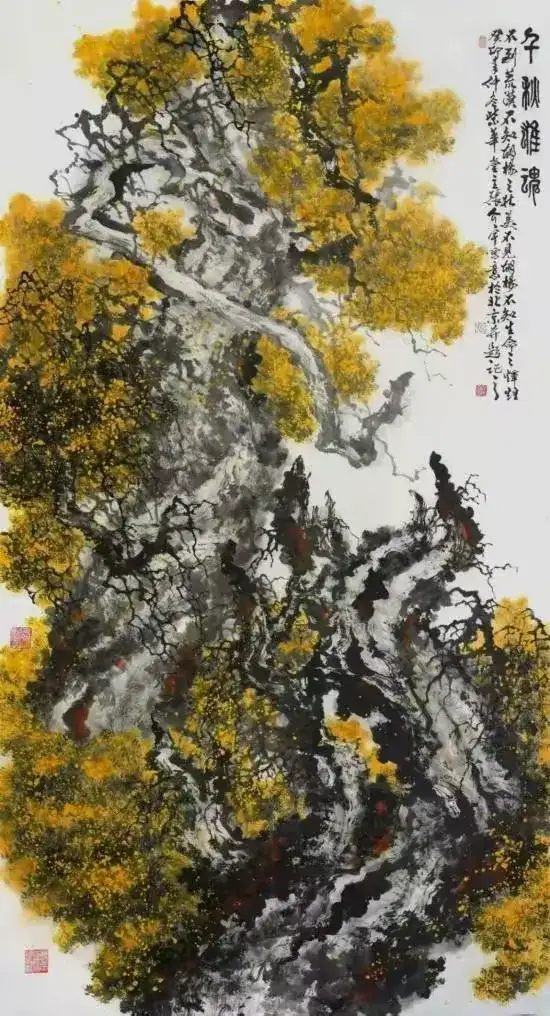 千秋雄魂
不到荒漠不知胡杨之壮美不见胡杨不知生命之辉煌
癸卯年仲冬紫华堂主张介宇写意於北京并题记之